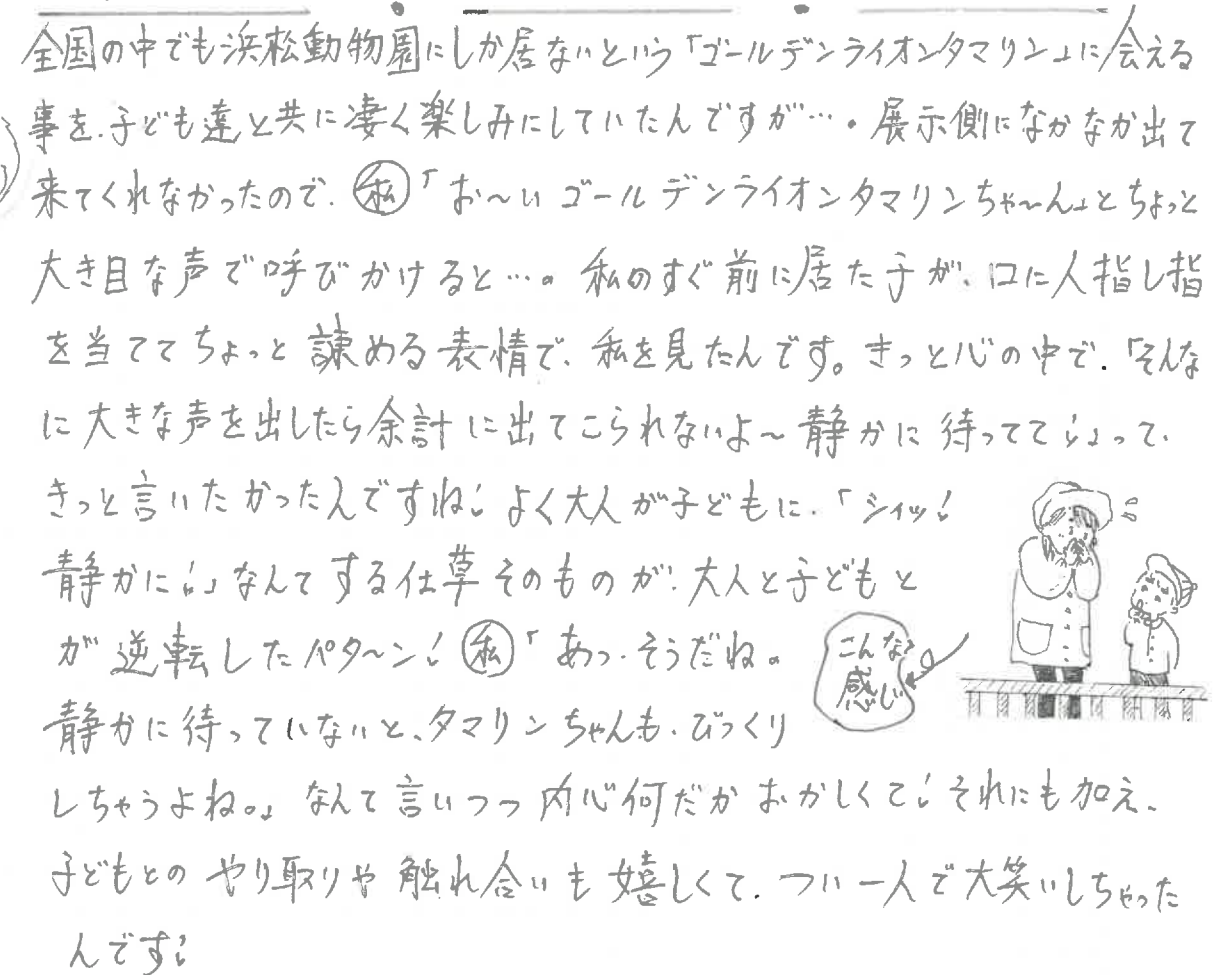 全国の中でも浜松動物園にしか居ないという「ゴールデンライオンタマリン」に会える
事を、子ども達と共に凄く楽しみにしていたんですが…。展示側になかなか出て
来てくれなかったので、私「お〜いゴールデンライオンタマリンちゃ〜ん」とちょっと
大き目な声で呼びかけると…。私のすぐ前に居た子が、口に人指し指
を当ててちょっと諌める表情で、私を見たんです。きっと心の中で、「そんな
に大きな声を出したら余計に出てこられないよ〜静かに待ってて!」って、
きっと言いたかったんですね!よく大人が子どもに、「シィッ!
静かに!」なんてする仕草そのものが、大人と子どもと
が逆転したパターン!私「あっ、そうだね。
静かに待っていないと、タマリンちゃんも、びっくり
しちゃうよね。」なんて言いつつ内心何だかおかしくて!それにも加え、
子どもとのやり取りや触れ合いも嬉しくて、つい一人で大笑いしちゃった
んです!
こんな
感じ